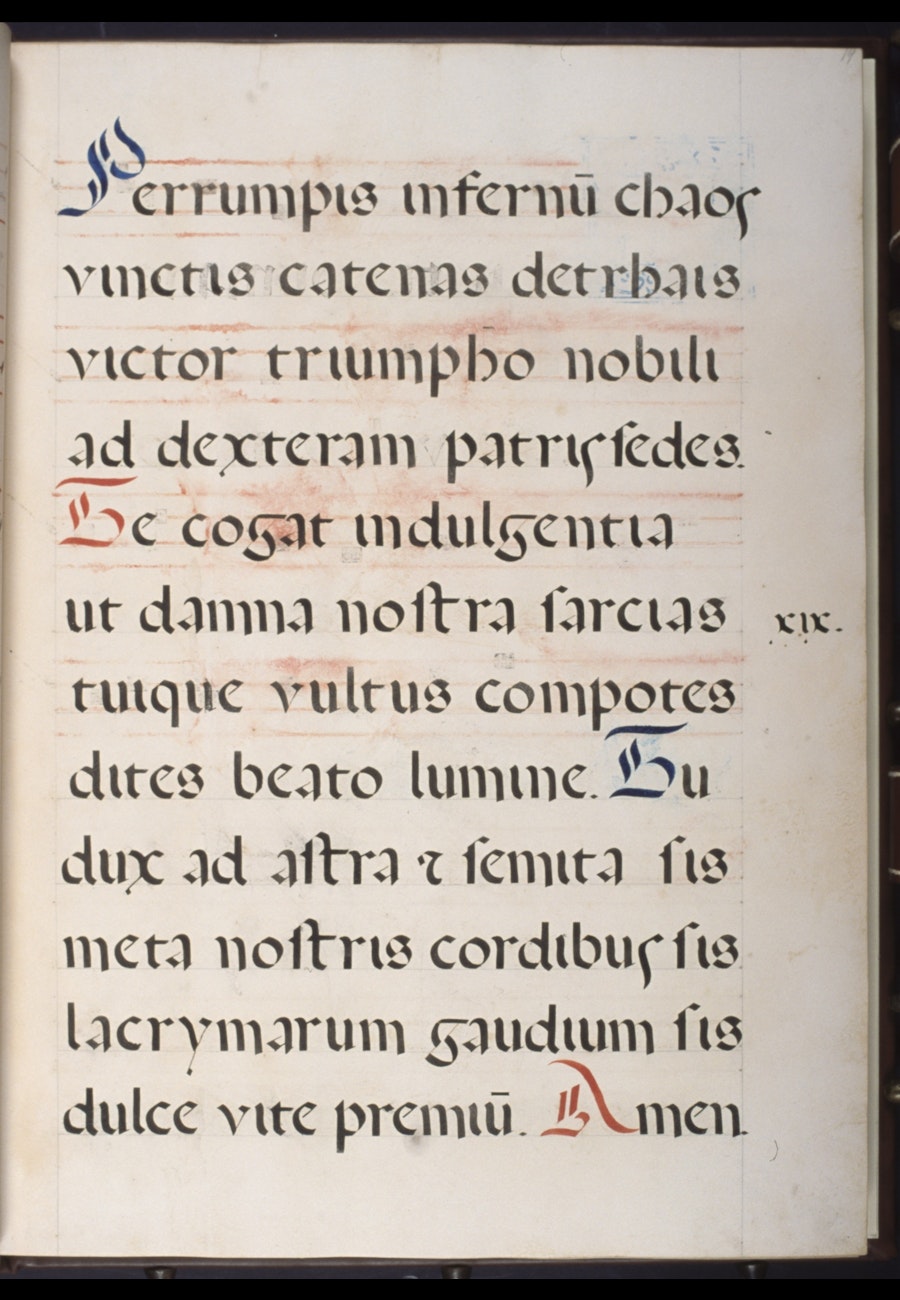 Perrumpis infernū chaos
vinctis catenas detrhais
victor triumpho nobili
ad dexteram patris sedes.
Te cogat indulgentia
ut damna nostra sarcias
xix.
tuique vultus compotes
dites beato lumine. Tu
dux ad astra ⁊ semita sis
meta nostris cordibus sis
lacrymarum gaudium sis
dulce vite premiū. Amen.